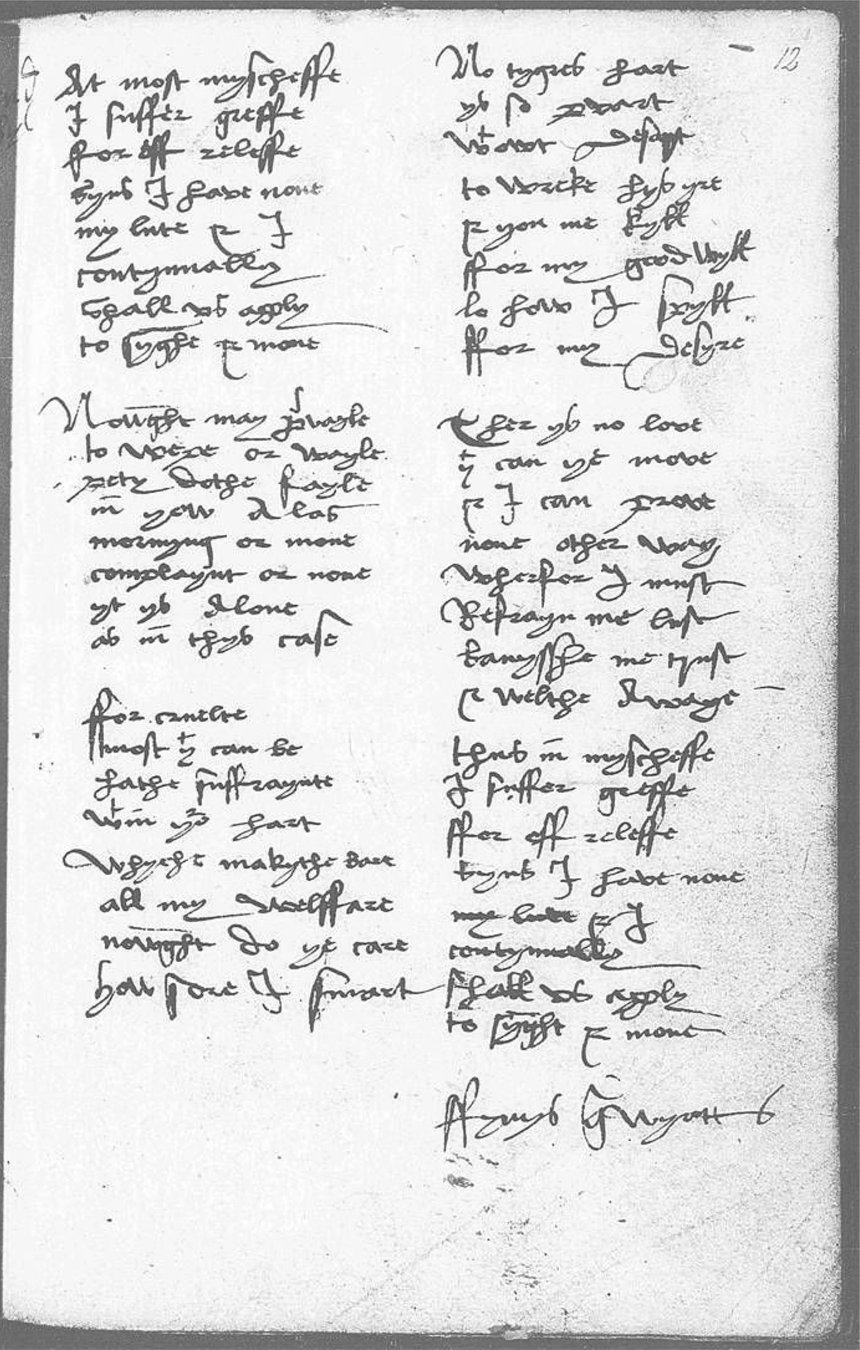 12
At most myscheffe
I suffer greffe
ffor off releffe
Syns I have none
my lute & I
contynually
Shall vs apply
to syghe & mone
Nowght may pvayle
to wepe or wayle
pety dothe fayle
in yow Alas
mornyng or mone
complaynt or none
yt ys Alone
as in thys case
ffor cruelte
most yt can be
hathe suffraynte
wtin yor hart
Whyche makythe bare
all my welffare
nowght do ye care
how sore I smart
No tygres hart
ys so pvart
wtowt desert
to wreke hys yre
& you me kyll
ffor my good wyll
lo how I spyll
ffor my desyre
Ther ys no love
yt can ye move
& I can prove
none other way
Wherfor I must
Refrayn me lust
banysshe me trust
& welthe Awaye
thus in myscheffe
I suffer greffe
ffor off releffe
Syns I have none
my lute & I
contynually
shall vs apply
to syght & mone
ffynys Wyatt